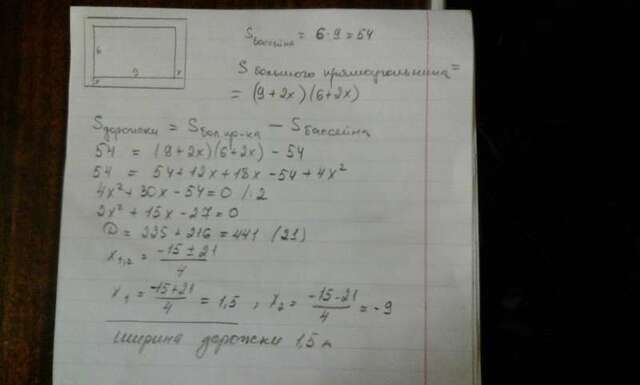 6
9
x
x
S бассейна = 6·9 = 54
S большого прямоугольника =
= (9+2x)(6+2x)
S дорожки = S бол.пр-ка − S бассейна
54 = (9+2x)(6+2x) − 54
54 = 54+12x+18x−54+4x²
4x²+30x−54=0 /:2
2x²+15x−27=0
D = 225+216=441 (21)
x₁,₂ = (−15±21)/4
x₁ = (−15+21)/4 = 1,5 , x₂ = (−15−21)/4 = −9
ширина дорожки 1,5 м